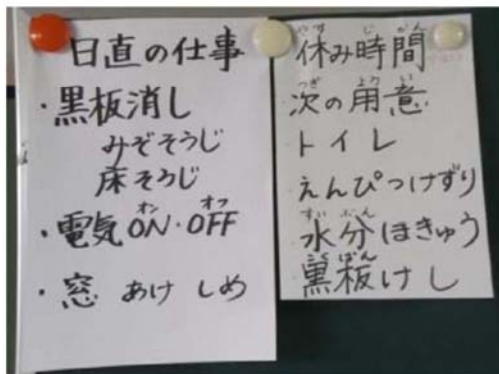 日直の仕事
・黒板消し
みぞそうじ
床そうじ
・電気ON・OFF
オン オフ
・窓 あけ しめ
休み時間
やす じ かん
次の用意
つぎ よう い
トイレ
えんぴつけずり
水分ほきゅう
すい ぶん
黒板けし
こくばん